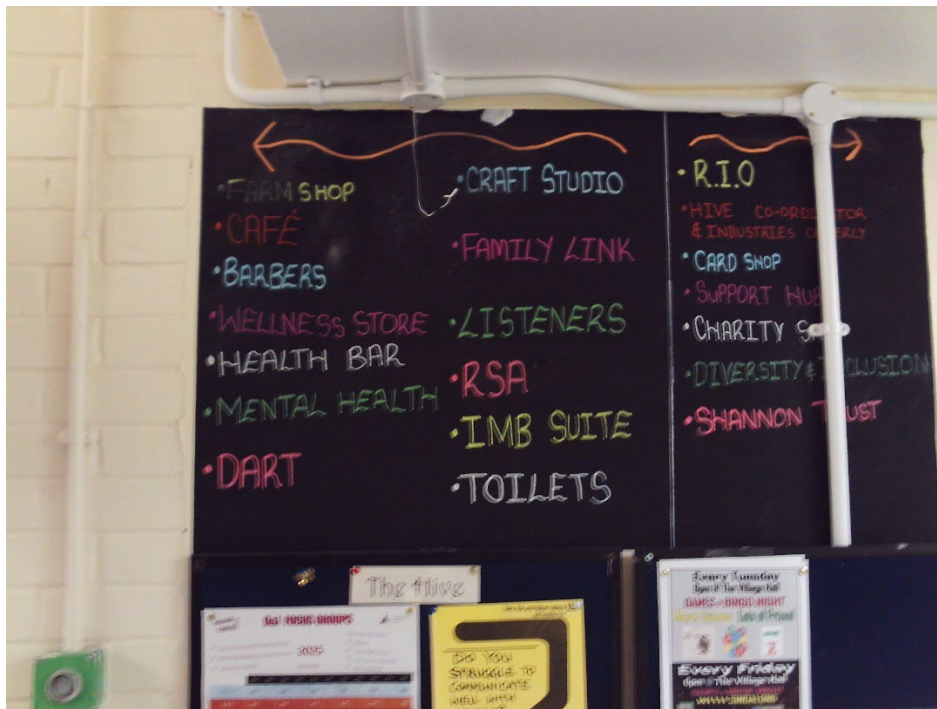 FARM SHOP
CAFÉ
BARBERS
WELLNESS STORE
HEALTH BAR
MENTAL HEALTH
DART
CRAFT STUDIO
FAMILY LINK
LISTENERS
RSA
IMB SUITE
TOILETS
R.I.O
HIVE CO-ORDINATOR
& INDUSTRIES ORDERLY
CARD SHOP
SUPPORT HUB
CHARITY
DIVERSITY & INCLUSION
SHANNON TRUST
The Hive
D&I FOCUS GROUPS
2025
DO YOU
STRUGGLE TO
COMMUNICATE
WELL WITH
Every Tuesday
6pm @ The Village Hall
GAMES & BINGO NIGHT
Every Friday
6pm @ The Village Hall